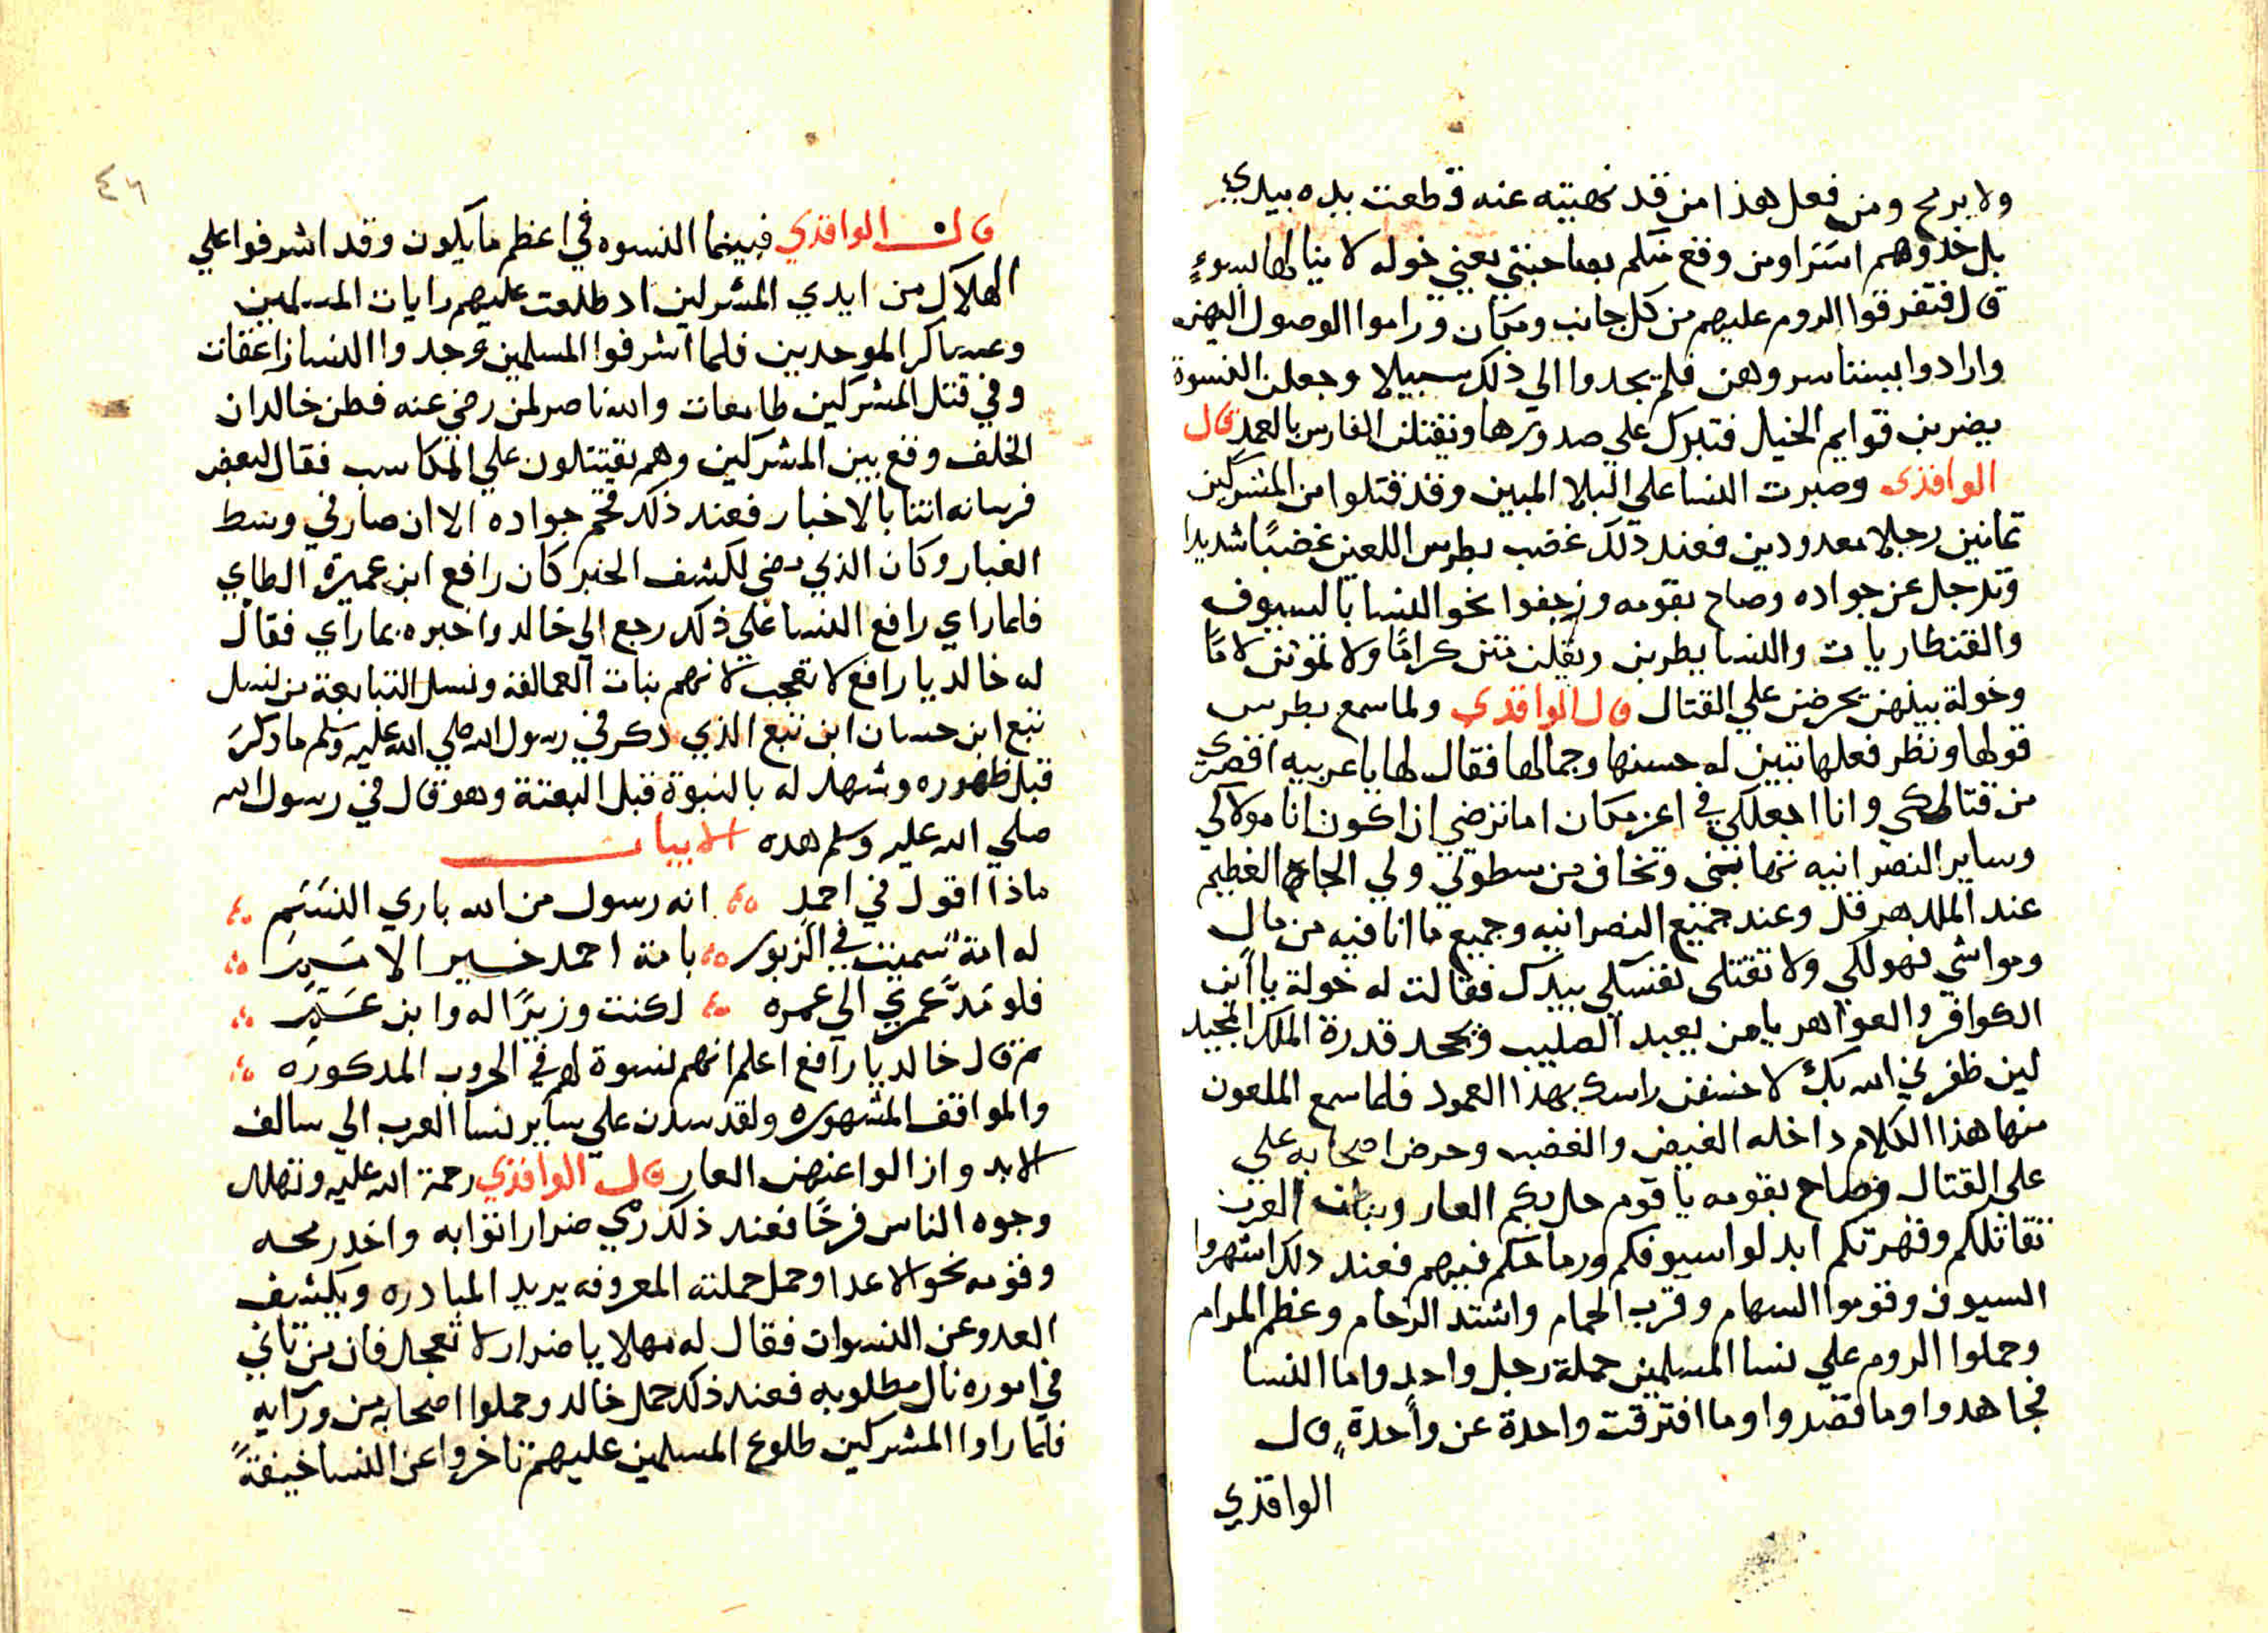 ولا برمح ومن فعل هذا من قد نهيته عنه قطعت يده بيدي
بل خدوهم اسرا ومن وقع منكم بصاحبتي يعني خوله لا ينالها بسوء
قال فتفرقوا الروم عليهم من كل جانب ومكان وراموا الوصول اليهن
وارادوا بيستاسروهن فلم يجدوا الي ذلك سبيلا وجعلن النسوة
يضربن قوايم الخيل فتبرك علي صدورها ويقتلن الفارس بالعمد قال
الواقدي وصبرت النسا علي البلا المبين وقد قتلوا من المشركين
ثمانين رجلا معدودين فعند ذلك غضب بطرس اللعين غضبًا شديدا
وترجل عن جواده وصاح بقومه وزحفوا نحو النسا بالسيوف
والقنطاريات والنسا يطربن ويقلن متن كرامًا ولا تموتن لامًا
وخولة بينهن يحرضن علي القتال قال الواقدي ولما سمع بطرس
قولها ونظر فعلها تبين له حسنها وجمالها فقال لها يا عربيه اقصري
من قتالكي وانا اجعلكي في اعز مكان اما ترضي ان اكون انا مولاكي
وساير النصرانيه تهابني وتخاف من سطوتي ولي الجاه العظيم
عند الملك هرقل وعند جميع النصرانيه وجميع ما انا فيه من مال
ومواشي فهو لكي ولا تقتلي نفسكي بيدك فقالت له خولة يا ابن
الكوافر والعواهر يا من يعبد الصليب ويجحد قدرة الملك المجيد
لين ظفرني الله بك لاخسفن راسك بهذا العمود فلما سمع الملعون
منها هذا الكلام داخله الغيض والغضب وحرض اصحابه علي
علي القتال وصاح بقومه يا قوم حل بكم العار وبنات العرب
تقاتلكم وقهرتكم ابدلوا سيوفكم ورماحكم فيهم فعند دلك اشهروا
السيوف وقوموا السهام وقرب الحمام واشتد الزحام وعظم المرام
وحملوا الروم علي نسا المسلمين حملة رجل واحد واما النسا
فجاهدوا وما قصروا وما افترقت واحدة عن واحدة قال
الواقدي
٤٦
قال الواقدي فبينما النسوه في اعظم ما يكون وقد اشرفوا علي
الهلاك من ايدي المشركين اد طلعت عليهم رايات المسلمين
وعساكر الموحدين فلما اشرفوا المسلمين وجدوا النسا زاعقات
وفي قتل المشركين طامعات والله ناصر لمن رضي عنه فظن خالد ان
الخلف وقع بين المشركين وهم يقتتلون علي المكاسب فقال لبعض
فرسانه اتنا بالاخبار فعند ذلك قحم جواده الا ان صار في وسط
الغبار وكان الذي مضي لكشف الخبر كان رافع ابن عميرة الطاي
فلما راي رافع النسا علي ذلك رجع الي خالد واخبره بما راي فقال
له خالد يا رافع لا تعجب لانهم بنات العمالقة ونسل التبابعة من نسل
تبع ابن حسان ابن تبع الذي ذكر في رسول الله صلي الله عليه وسلم ما ذكر
قبل ظهوره وشهد له بالنبوة قبل البعثة وهو قال في رسول الله
صلي الله عليه وسلم هده الابيات
ماذا اقول في احمد انه رسول من الله باري النسم
له امة سميت في الزبور بامة احمد خير الامم
فلو مد عمري الي عمره لكنت وزيرًا له وابن عم
ثم قال خالد يا رافع اعلم انهم نسوة لهم في الحروب المدكوره
والمواقف المشهوره ولقد سدن علي ساير نسا العرب الي سالف
الابد وازالوا عنهن العار قال الواقدي رحمة الله عليه وتهلل
وجوه الناس فرحًا فعند ذلك رمي ضرار اثوابه واخد رمحه
وقومه نحو الاعدا وحمل حملته المعروفه يريد المبادره ويكشف
العدو عن النسوان فقال له مهلا يا ضرار لا تعجل فان من تاني
في اموره نال مطلوبه فعند ذلك حمل خالد وحملوا اصحابه من ورايه
فلما راوا المشركين طلوع المسلمين عليهم تاخروا عن النسا خيفةً